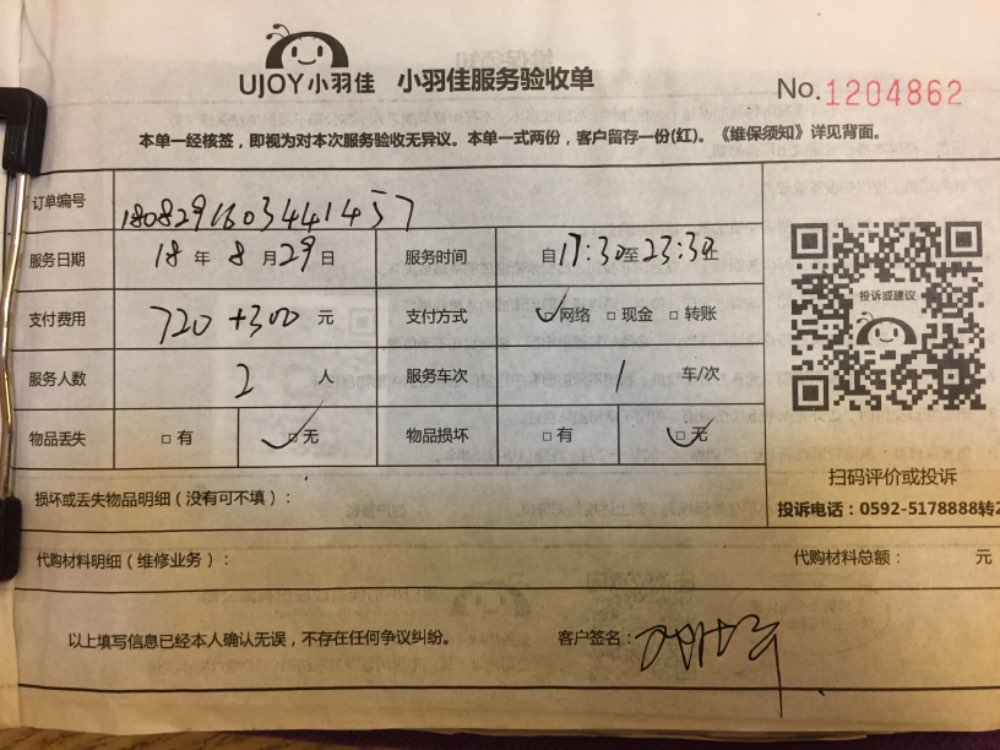 UJOY小羽佳 小羽佳服务验收单
No.1204862
本单一经核签，即视为对本次服务验收无异议。本单一式两份，客户留存一份(红)。《维保须知》详见背面。
订单编号 1808291603441457
服务日期 18 年 8 月 29 日 服务时间 自17:30至23:30止
支付费用 720+300 元 支付方式 ☑网络 □现金 □转账
投诉或建议
服务人数 2 人 服务车次 1 车/次
物品丢失 □有 ☑无 物品损坏 □有 ☑无
扫码评价或投诉
损坏或丢失物品明细（没有可不填）：
投诉电话：0592-5178888转2
代购材料明细（维修业务）： 代购材料总额： 元
以上填写信息已经本人确认无误，不存在任何争议纠纷。 客户签名：